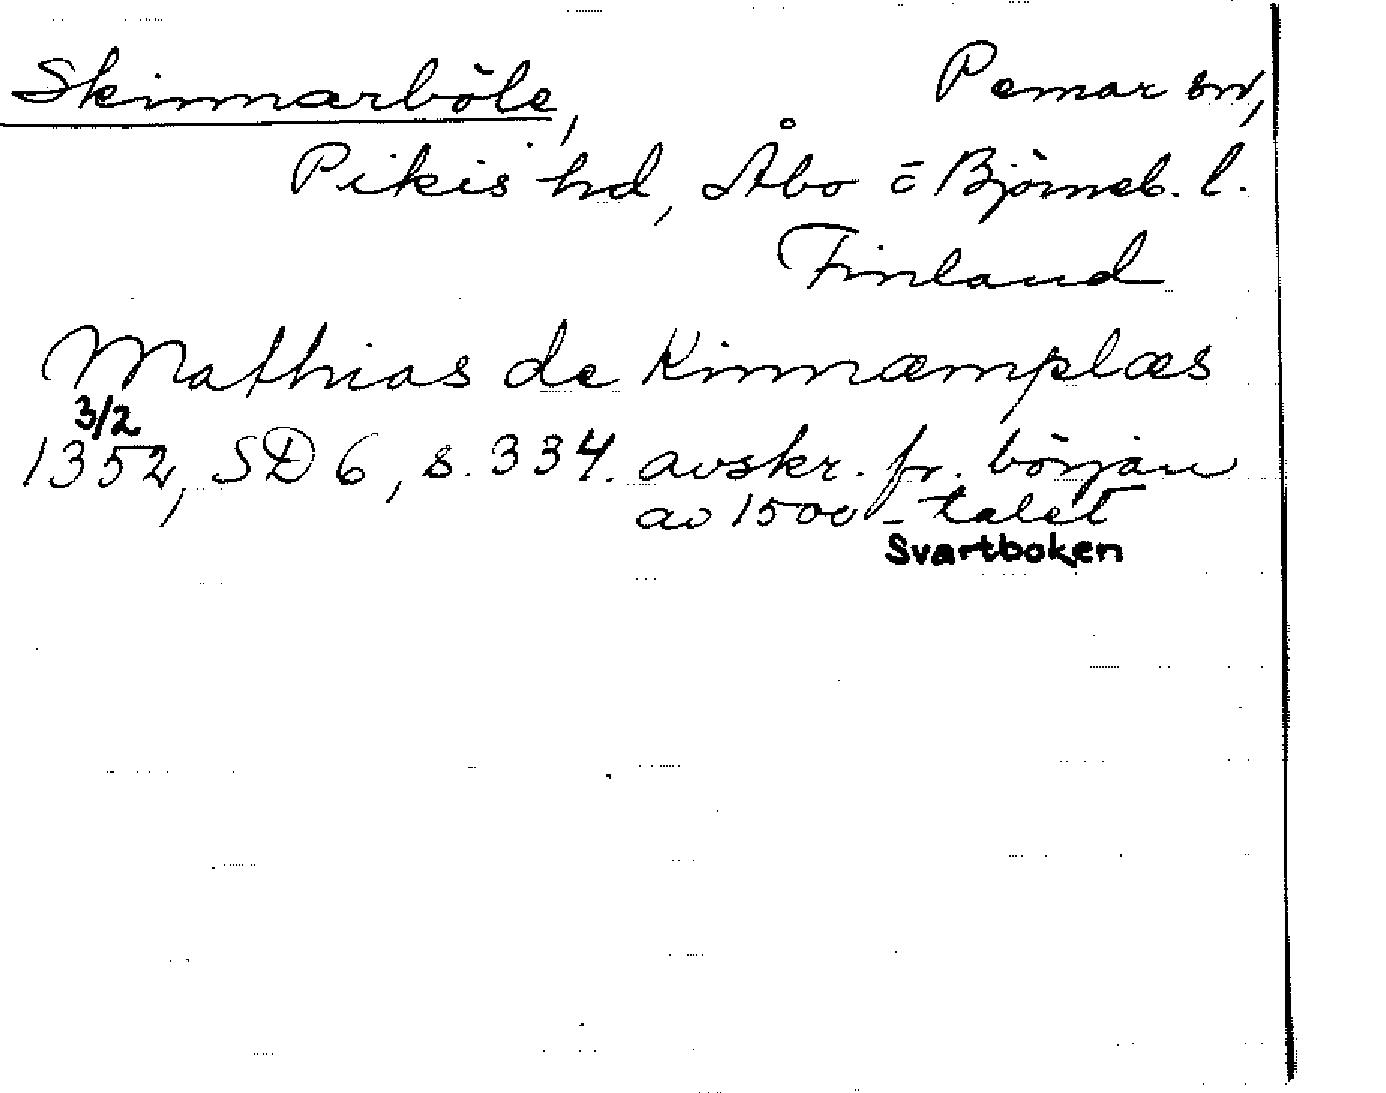 Skinnarböle, Pemar sn,
Pikis hd, Åbo o Björneb. l.
Finland
Mathias de Kinnæmplæs
3/2
1352, SD 6, s. 334. avskr. fr. början
av 1500-talet
Svartboken